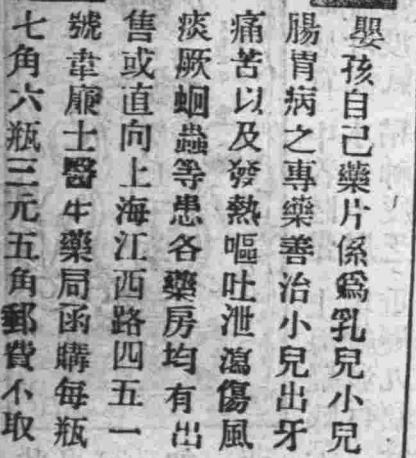 嬰孩自己藥片係爲乳兒小兒
腸胃病之專藥善治小兒出牙
痛苦以及發熱嘔吐泄瀉傷風
痰厥蛔蟲等患各藥房均有出
售或直向上海江西路四五一
號韋廉士醫生藥局函購每瓶
七角六瓶三元五角郵費不取